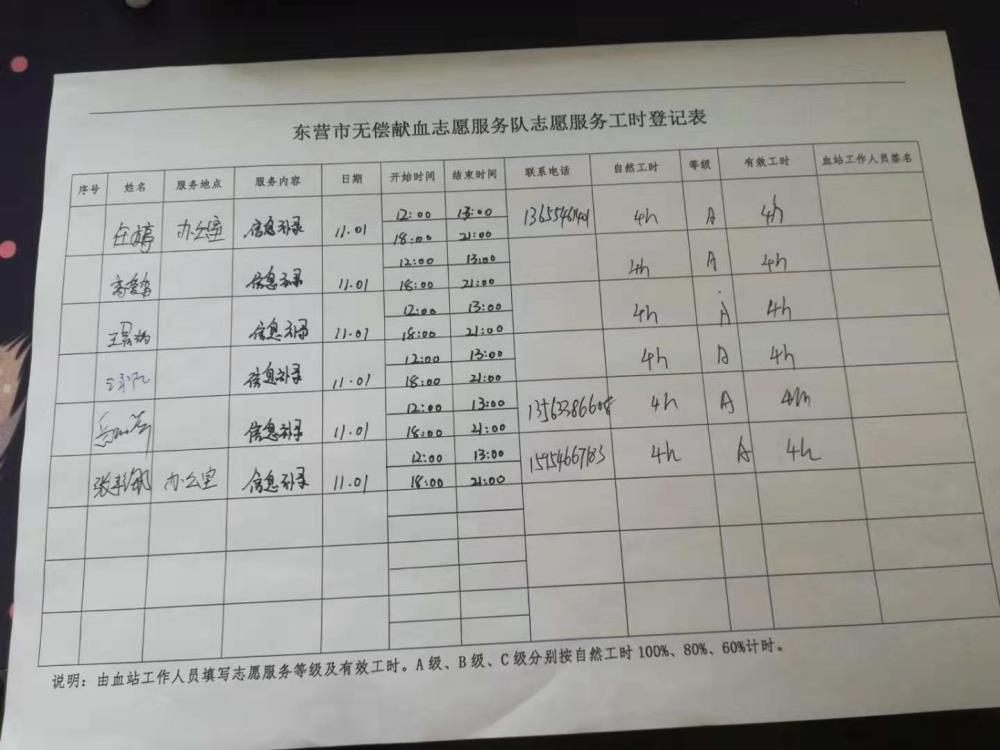 东营市无偿献血志愿服务队志愿服务工时登记表
序号 姓名 服务地点 服务内容 日期 开始时间 结束时间 联系电话 自然工时 等级 有效工时 血站工作人员签名
任婷 办公室 信息补录 11.01 12:00 13:00 4h A 4h
18:00 21:00
信息补录 11.01 12:00 13:00 4h A 4h
18:00 21:00
信息补录 11.01 12:00 13:00 4h A 4h
18:00 21:00
信息补录 11.01 12:00 13:00 4h A 4h
18:00 21:00
信息补录 11.01 12:00 13:00 13563386608 4h A 4h
18:00 21:00
办公室 信息补录 11.01 12:00 13:00 15954667183 4h A 4h
18:00 21:00
说明：由血站工作人员填写志愿服务等级及有效工时。A级、B级、C级分别按自然工时100%、80%、60%计时。